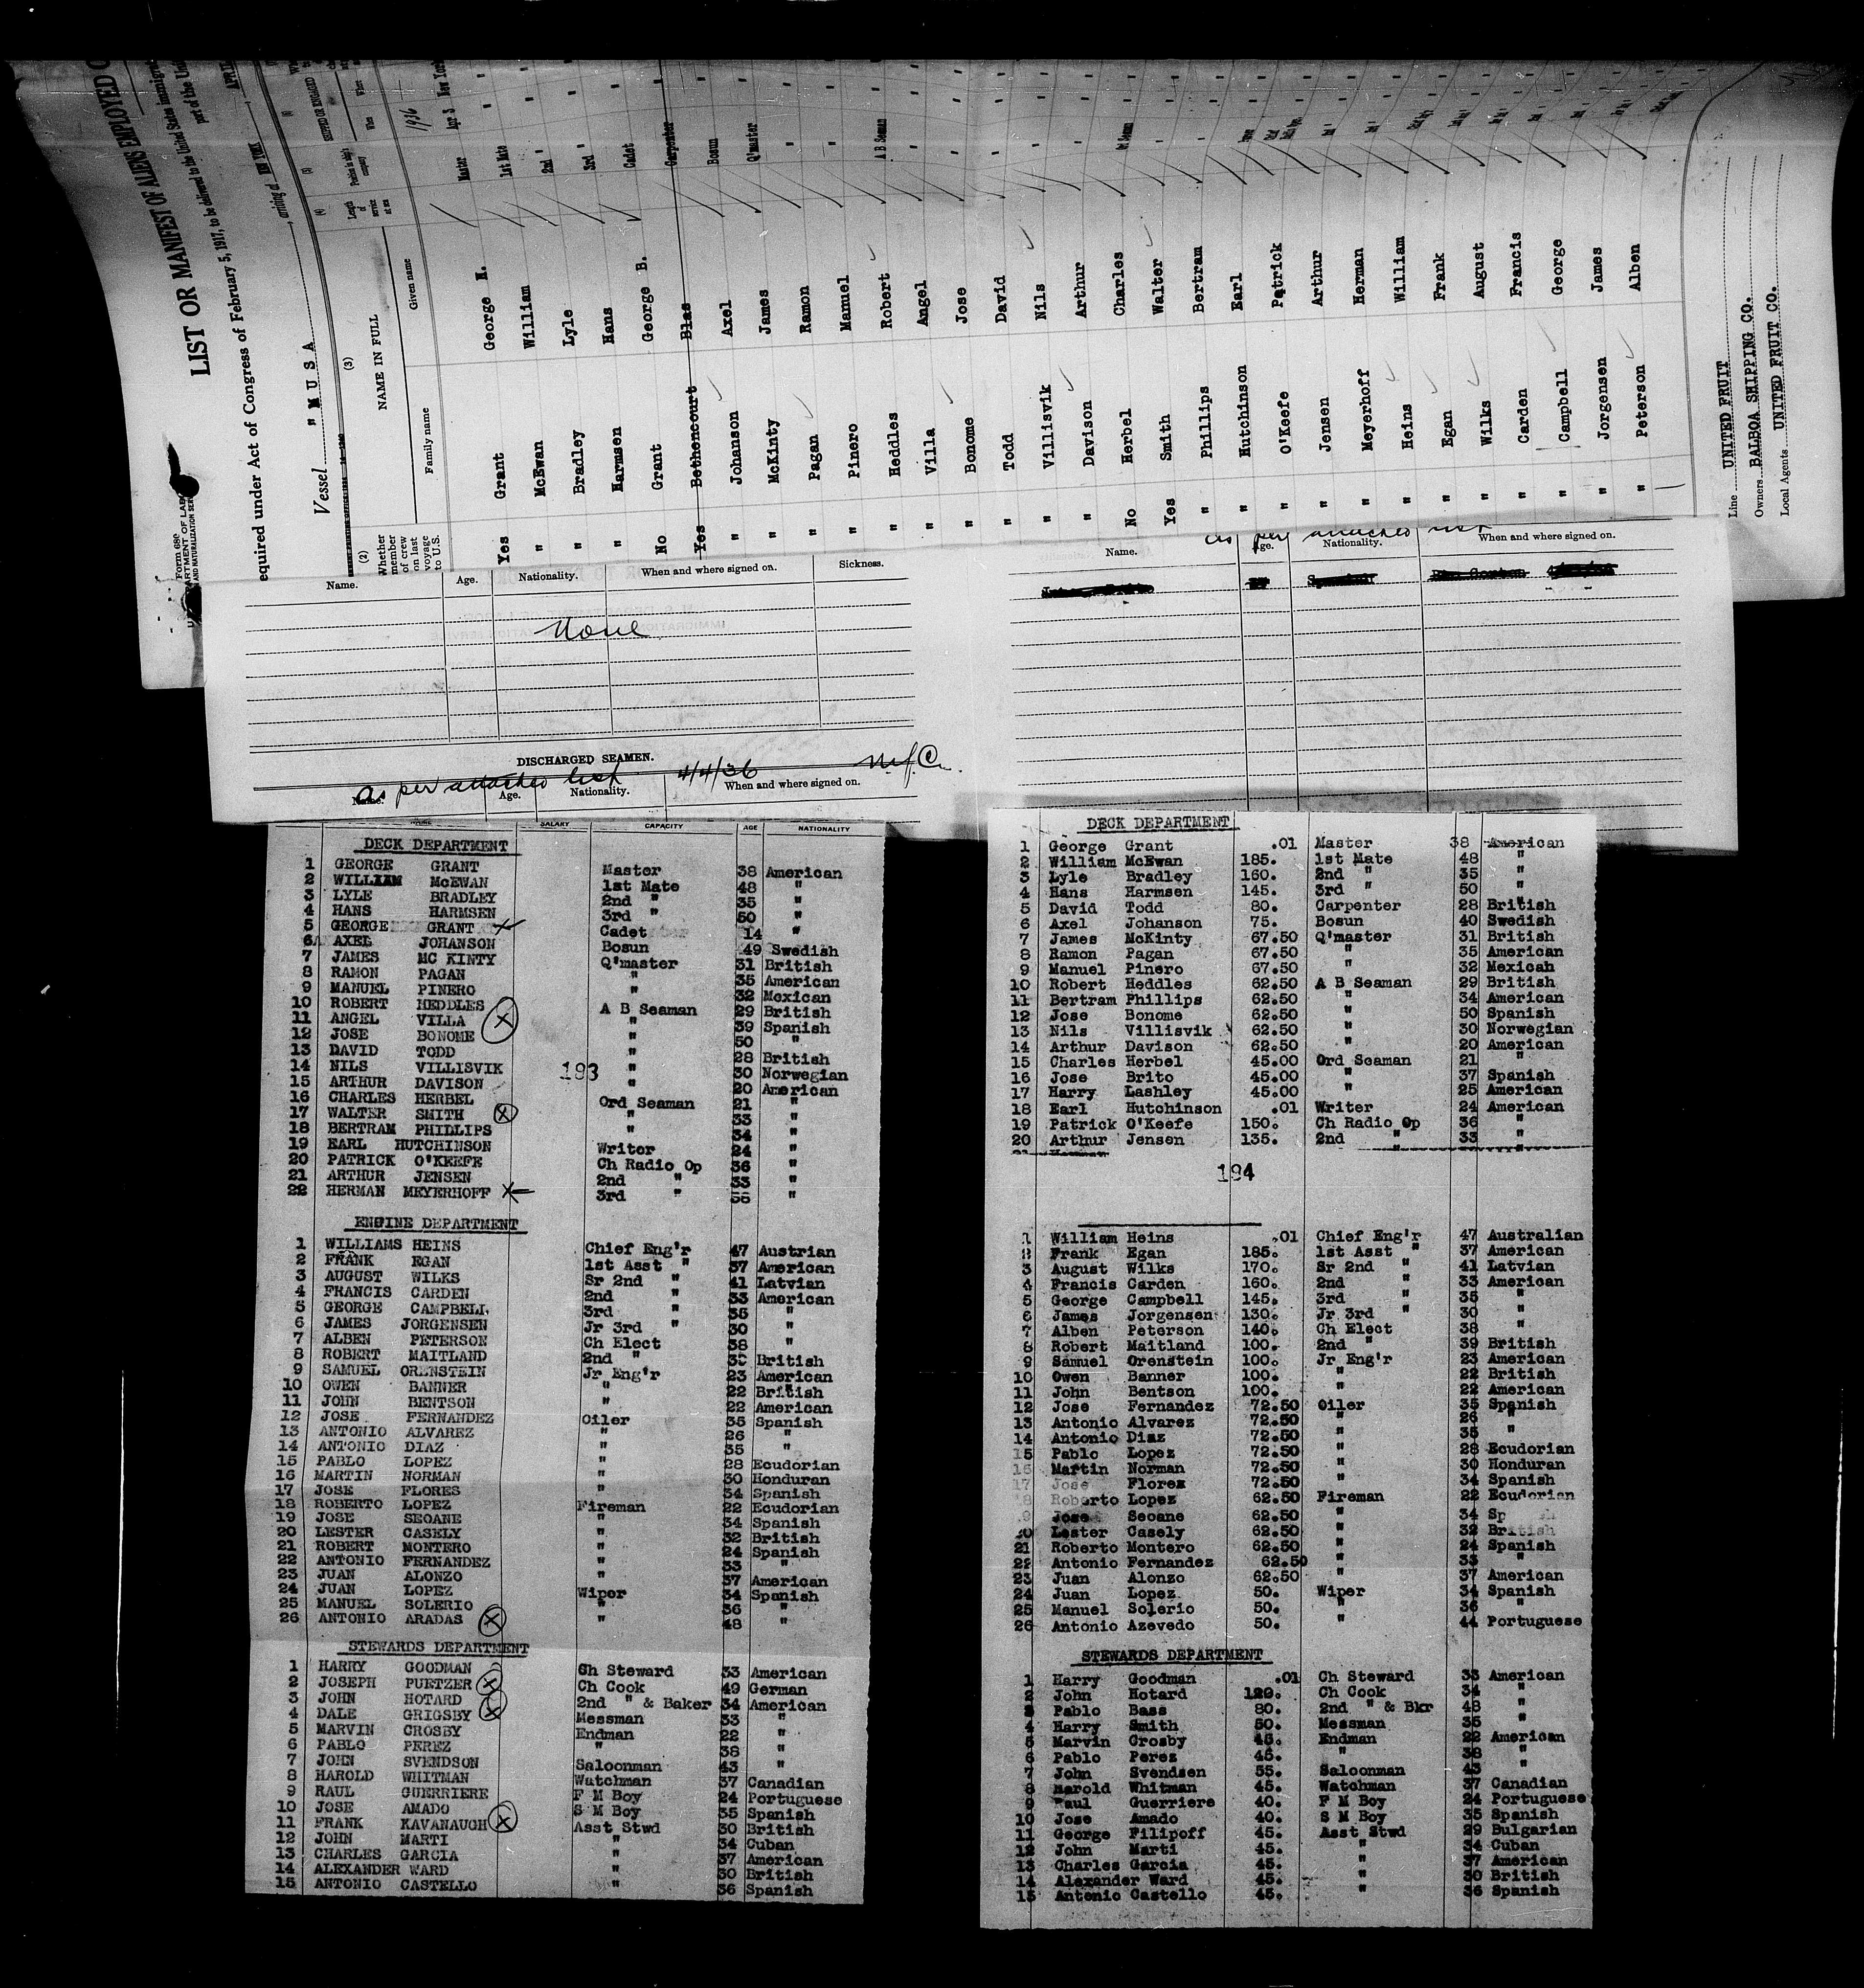 Form 680
LIST OR MANIFEST OF ALIENS EMPLOYED O
equired under Act of Congress of February 5, 1917, to be delivered to the United States
part of the
Vessel "MUSA arriving at
(2) (3) (4) (5)
Whether member of crew on last voyage to U.S.
NAME IN FULL
Family name Given name
Length of service at sea
Position in ship's company
SHIPPED OR ENGAGED
When
1936
Yes Grant George H. Master Apr 3 New York
" McEwan William 1st Mate " "
" Bradley Lyle 2nd " " "
" Harmsen Hans 3rd " " "
No Grant George B. Cadet " "
Yes Bethencourt Blas Carpenter " "
" Johanson Axel Bosun " "
" McKinty James Q'master " "
" Pagan Ramon " " "
" Pinero Manuel " " "
" Heddles Robert A B Seaman " "
" Villa Angel " " "
" Bonome Jose " " "
" Todd David " " "
" Villisvik Nils " " "
" Davison Arthur " " "
No Herbel Charles " "
Yes Smith Walter " " "
" Phillips Bertram " " "
" Hutchinson Earl
" O'Keefe Patrick
" Jensen Arthur
" Meyerhoff Herman
" Heins William
" Egan Frank
" Wilks August
" Carden Francis
" Campbell George
" Jorgensen James
" Peterson Alben
Line UNITED FRUIT
Owners BALBOA SHIPPING CO.
Local Agents UNITED FRUIT CO.
Name. Age. Nationality. When and where signed on. Sickness.
None
DISCHARGED SEAMEN.
as per attached list 4/4/36
Name. Age. Nationality. When and where signed on.
as per attached list
Name. Age. Nationality. When and where signed on.
SALARY CAPACITY AGE NATIONALITY
DECK DEPARTMENT
1 GEORGE GRANT Master 38 American
2 WILLIAM McEWAN 1st Mate 48 "
3 LYLE BRADLEY 2nd " 35 "
4 HANS HARMSEN 3rd " 50 "
5 GEORGE GRANT X Cadet 14 "
6 AXEL JOHANSON Bosun 49 Swedish
7 JAMES MC KINTY Q'master 31 British
8 RAMON PAGAN " 35 American
9 MANUEL PINERO " 32 Mexican
10 ROBERT HEDDLES A B Seaman 29 British
11 ANGEL VILLA X " 39 Spanish
12 JOSE BONOME " 50 "
13 DAVID TODD " 28 British
14 NILS VILLISVIK " 30 Norwegian
193
15 ARTHUR DAVISON " 20 American
16 CHARLES HERBEL Ord Seaman 21 "
17 WALTER SMITH X " 33 "
18 BERTRAM PHILLIPS " 34 "
19 EARL HUTCHINSON Writer 24 "
20 PATRICK O'KEEFE Ch Radio Op 36 "
21 ARTHUR JENSEN 2nd " 33 "
22 HERMAN MEYERHOFF X 3rd " 55 "
ENGINE DEPARTMENT
1 WILLIAMS HEINS Chief Eng'r 47 Austrian
2 FRANK EGAN 1st Asst " 37 American
3 AUGUST WILKS Sr 2nd " 41 Latvian
4 FRANCIS CARDEN 2nd " 33 American
5 GEORGE CAMPBELL 3rd " 35 "
6 JAMES JORGENSEN Jr 3rd " 30 "
7 ALBEN PETERSON Ch Elect 38 "
8 ROBERT MAITLAND 2nd " British
9 SAMUEL ORENSTEIN Jr Eng'r 23 American
10 OWEN BANNER " 22 British
11 JOHN BENTSON " 22 American
12 JOSE FERNANDEZ Oiler 35 Spanish
13 ANTONIO ALVAREZ " 26 "
14 ANTONIO DIAZ " 35 "
15 PABLO LOPEZ " 28 Ecudorian
16 MARTIN NORMAN " 30 Honduran
17 JOSE FLORES " 34 Spanish
18 ROBERTO LOPEZ Fireman 22 Ecudorian
19 JOSE SEOANE " 34 Spanish
20 LESTER CASELY " 32 British
21 ROBERT MONTERO " 24 Spanish
22 ANTONIO FERNANDEZ " 33 "
23 JUAN ALONZO " 37 American
24 JUAN LOPEZ Wiper 34 Spanish
25 MANUEL SOLERIO " 36 "
26 ANTONIO ARADAS X " 48 "
STEWARDS DEPARTMENT
1 HARRY GOODMAN Ch Steward 33 American
2 JOSEPH PUETZER X Ch Cook 49 German
3 JOHN HOTARD 2nd " & Baker 34 American
4 DALE GRIGSBY X Messman 33 "
5 MARVIN CROSBY Endman 22 "
6 PABLO PEREZ " 38 "
7 JOHN SVENDSON Saloonman 43 "
8 HAROLD WHITMAN Watchman 37 Canadian
9 RAUL GUERRIERE F M Boy 24 Portuguese
10 JOSE AMADO S M Boy 35 Spanish
11 FRANK KAVANAUGH X Asst Stwd 30 British
12 JOHN MARTI " 34 Cuban
13 CHARLES GARCIA " 37 American
14 ALEXANDER WARD " 30 British
15 ANTONIO CASTELLO " 36 Spanish
DECK DEPARTMENT
1 George Grant .01 Master 38 American
2 William McEwan 185. 1st Mate 48 "
3 Lyle Bradley 160. 2nd " 35 "
4 Hans Harmsen 145. 3rd " 50 "
5 David Todd 80. Carpenter 28 British
6 Axel Johanson 75. Bosun 40 Swedish
7 James McKinty 67.50 Q'master 31 British
8 Ramon Pagan 67.50 " 35 American
9 Manuel Pinero 67.50 " 32 Mexican
10 Robert Heddles 62.50 A B Seaman 29 British
11 Bertram Phillips 62.50 " 34 American
12 Jose Bonome 62.50 " 50 Spanish
13 Nils Villisvik 62.50 " 30 Norwegian
14 Arthur Davison 62.50 " 20 American
15 Charles Herbel 45.00 Ord Seaman 21 "
16 Jose Brito 45.00 " 37 Spanish
17 Harry Lashley 45.00 " 25 American
18 Earl Hutchinson .01 Writer 24 American
19 Patrick O'Keefe 150. Ch Radio Op 36 "
20 Arthur Jensen 135. 2nd " 33 "
194
1 William Heins .01 Chief Eng'r 47 Australian
2 Frank Egan 185. 1st Asst " 37 American
3 August Wilks 170. Sr 2nd " 41 Latvian
4 Francis Carden 160. 2nd " 33 American
5 George Campbell 145. 3rd " 35 "
6 James Jorgensen 130. Jr 3rd " 30 "
7 Alben Peterson 140. Ch Elect 38 "
8 Robert Maitland 100. 2nd " 39 British
9 Samuel Orenstein 100. Jr Eng'r 23 American
10 Owen Banner 100. " 22 British
11 John Bentson 100. " 22 American
12 Jose Fernandez 72.50 Oiler 35 Spanish
13 Antonio Alvarez 72.50 " 26 "
14 Antonio Diaz 72.50 " 35 "
15 Pablo Lopez 72.50 " 28 Ecudorian
16 Martin Norman 72.50 " 30 Honduran
17 Jose Florez 72.50 " 34 Spanish
18 Roberto Lopez 62.50 Fireman 22 Ecudorian
19 Jose Seoane 62.50 " 34 Sp
20 Lester Casely 62.50 " 32 British
21 Roberto Montero 62.50 " 24 Spanish
22 Antonio Fernandez 62.50 " 33 "
23 Juan Alonzo 62.50 " 37 American
24 Juan Lopez 50. Wiper 34 Spanish
25 Manuel Solerio 50. " 36 "
26 Antonio Azevedo 50. " 44 Portuguese
STEWARDS DEPARTMENT
1 Harry Goodman .01 Ch Steward 33 American
2 John Hotard 120. Ch Cook 34 "
3 Pablo Bass 80. 2nd " & Bkr 48 "
4 Harry Smith 50. Messman 35 "
5 Marvin Crosby 45. Endman 22 American
6 Pablo Perez 45. " 38 "
7 John Svendsen 55. Saloonman 43 "
8 Harold Whitman 45. Watchman 37 Canadian
9 Raul Guerriere 40. F M Boy 24 Portuguese
10 Jose Amado 40. S M Boy 35 Spanish
11 George Filipoff 45. Asst Stwd 29 Bulgarian
12 John Marti 45. " 34 Cuban
13 Charles Garcia 45. " 37 American
14 Alexander Ward 45. " 30 British
15 Antonio Castello 45. " 36 Spanish